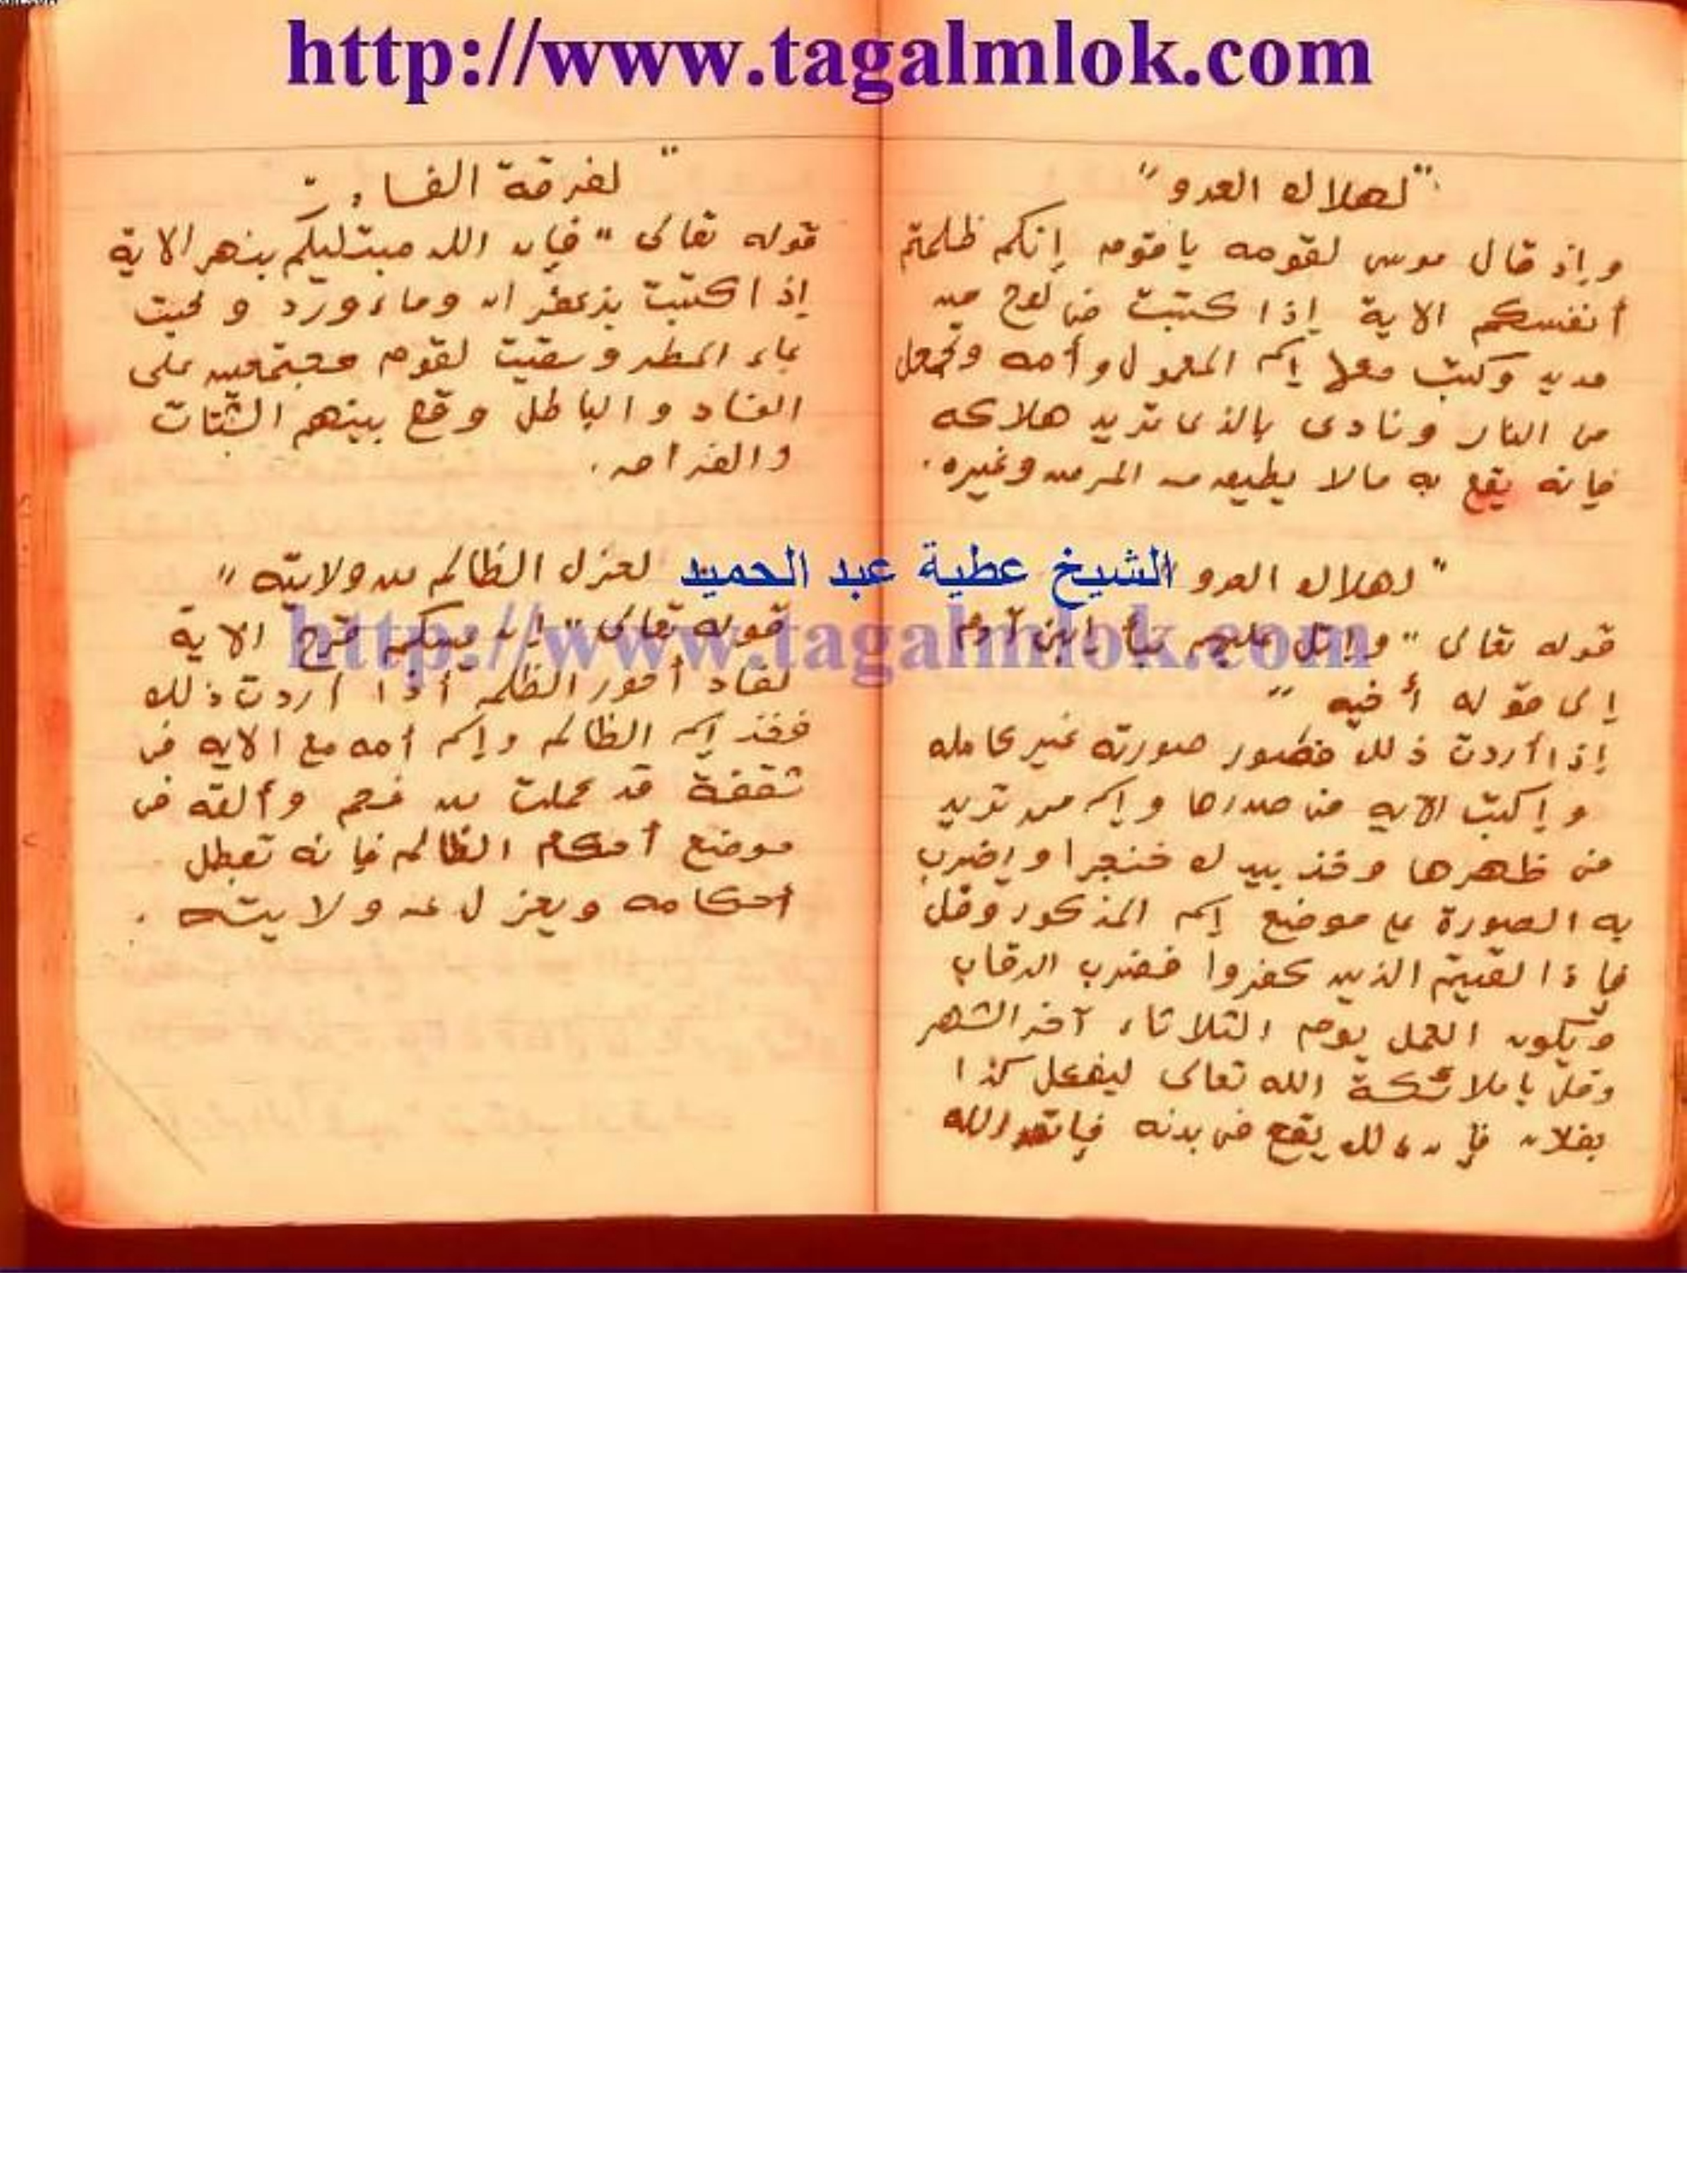 http://www.tagalmlok.com
"لهلاك العدو"
وإذ قال موسى لقومه يا قوم إنكم ظلمتم
أنفسكم الاية إذا كتبت فى لوح من
حديد وكتبت معها إسم المعمول وأمه وتجعل
فى النار ونادى بالذى تريد هلاكه
فإنه يقع به مالا يطيق من المرض وغيره.
"لهلاك العدو
قوله تعالى "وإتل عليهم نبأ إبنى آدم
إلى قوله أخيه"
إذا أردت ذلك فصور صورته غير كامله
وإكتب الايه فى صدرها وإسم من تريد
فى ظهرها وخذ بيدك خنجرا وإضرب
به الصورة على موضع إسم المذكور وقل
فإذا لقيتم الذين كفروا فضرب الرقاب
ويكون العمل يوم الثلاثاء آخر الشهر
وقل يا ملائكة الله تعالى ليفعل كذا
بفلان فإن ذلك يقع فى بدنه فإتق الله
"لفرقة الفساد"
قوله تعالى "فإن الله مبتليكم بنهر الاية
إذا كتبت بزعفران وماء ورد ومحيت
بماء المطر وسقيت لقوم مجتمعين على
الفساد والباطل وقع بينهم الشتات
والفراق.
الشيخ عطية عبد الحميد
لعزل الظالم من ولايته"
http://www.tagalmlok.com
قوله تعالى "إن يمسسكم قرح الاية
لفساد أمور الظلمه أذا أردت ذلك
فخذ إسم الظالم وإسم أمه مع الايه فى
شقفة قد عملت من فحم وألقه فى
موضع أحكام الظالم فإنه تعطل
أحكامه ويعزل عن ولايته.